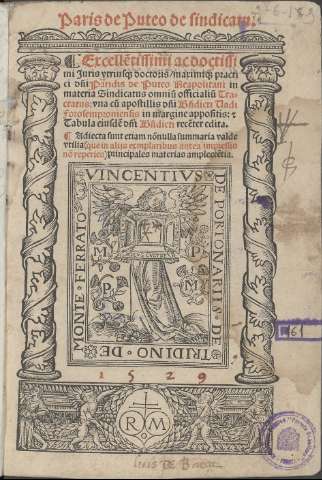 Paris de Puteo de sindicatu.
¶ Excellētissimi ac doctissi
mi Juris vtriusq; doctoris/ maximiq; practi
ci dñi Paridis de Puteo Neapolitani in
materia Sindicatus omniū officialiū Tra-
ctatus: vna cū apostillis dñi Bñdicti Vadi
Forosemproniensis in margine appositis: ⁊
Tabula eiusdē dñi Bñdicti recēter edita.
¶ Adiecta sunt etiam nōnulla summaria valde
vtilia (que in alijs exemplaribus antea impressis
nō reperies) principales materias amplectētia.
VINCENTIVS DE PORTONARIIS DE TRIDINO DE MONTE FERRATO
M P
P M
1529
R M
Luis de